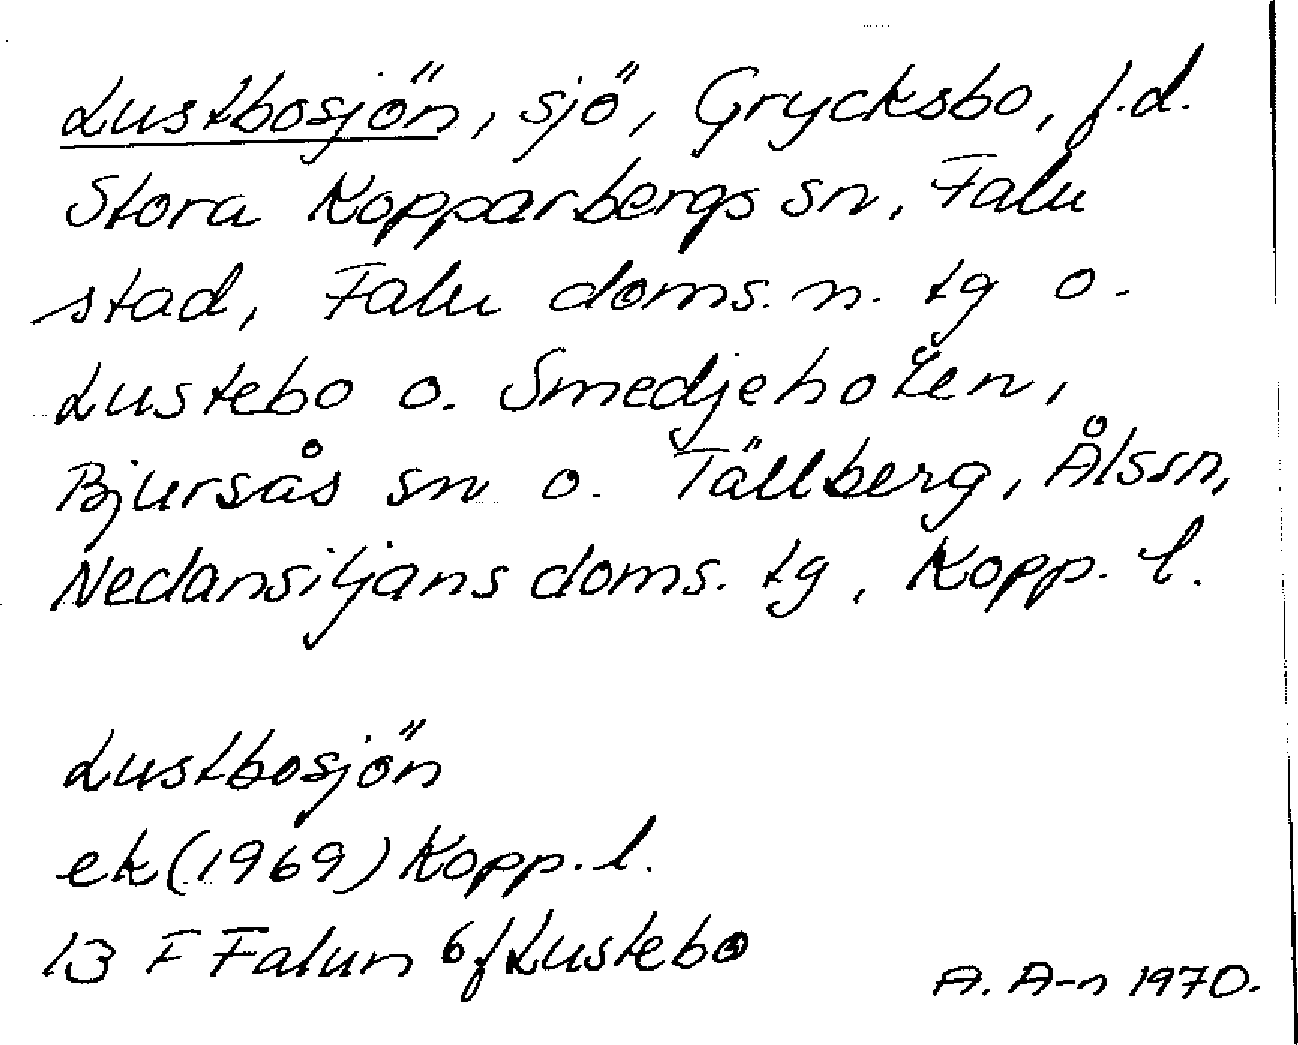 Lustbosjön, sjö, Grycksbo, f.d.
Stora Kopparbergs sn, Falu
stad, Falu doms. n. tg o.
Lustebo o. Smedjeholen,
Bjursås sn o. Tällberg, Ålssn,
Nedansiljans doms. tg, Kopp. l.
Lustbosjön
ek (1969) Kopp. l.
13 F Falun 6 f Lustebo
A. A-n 1970.